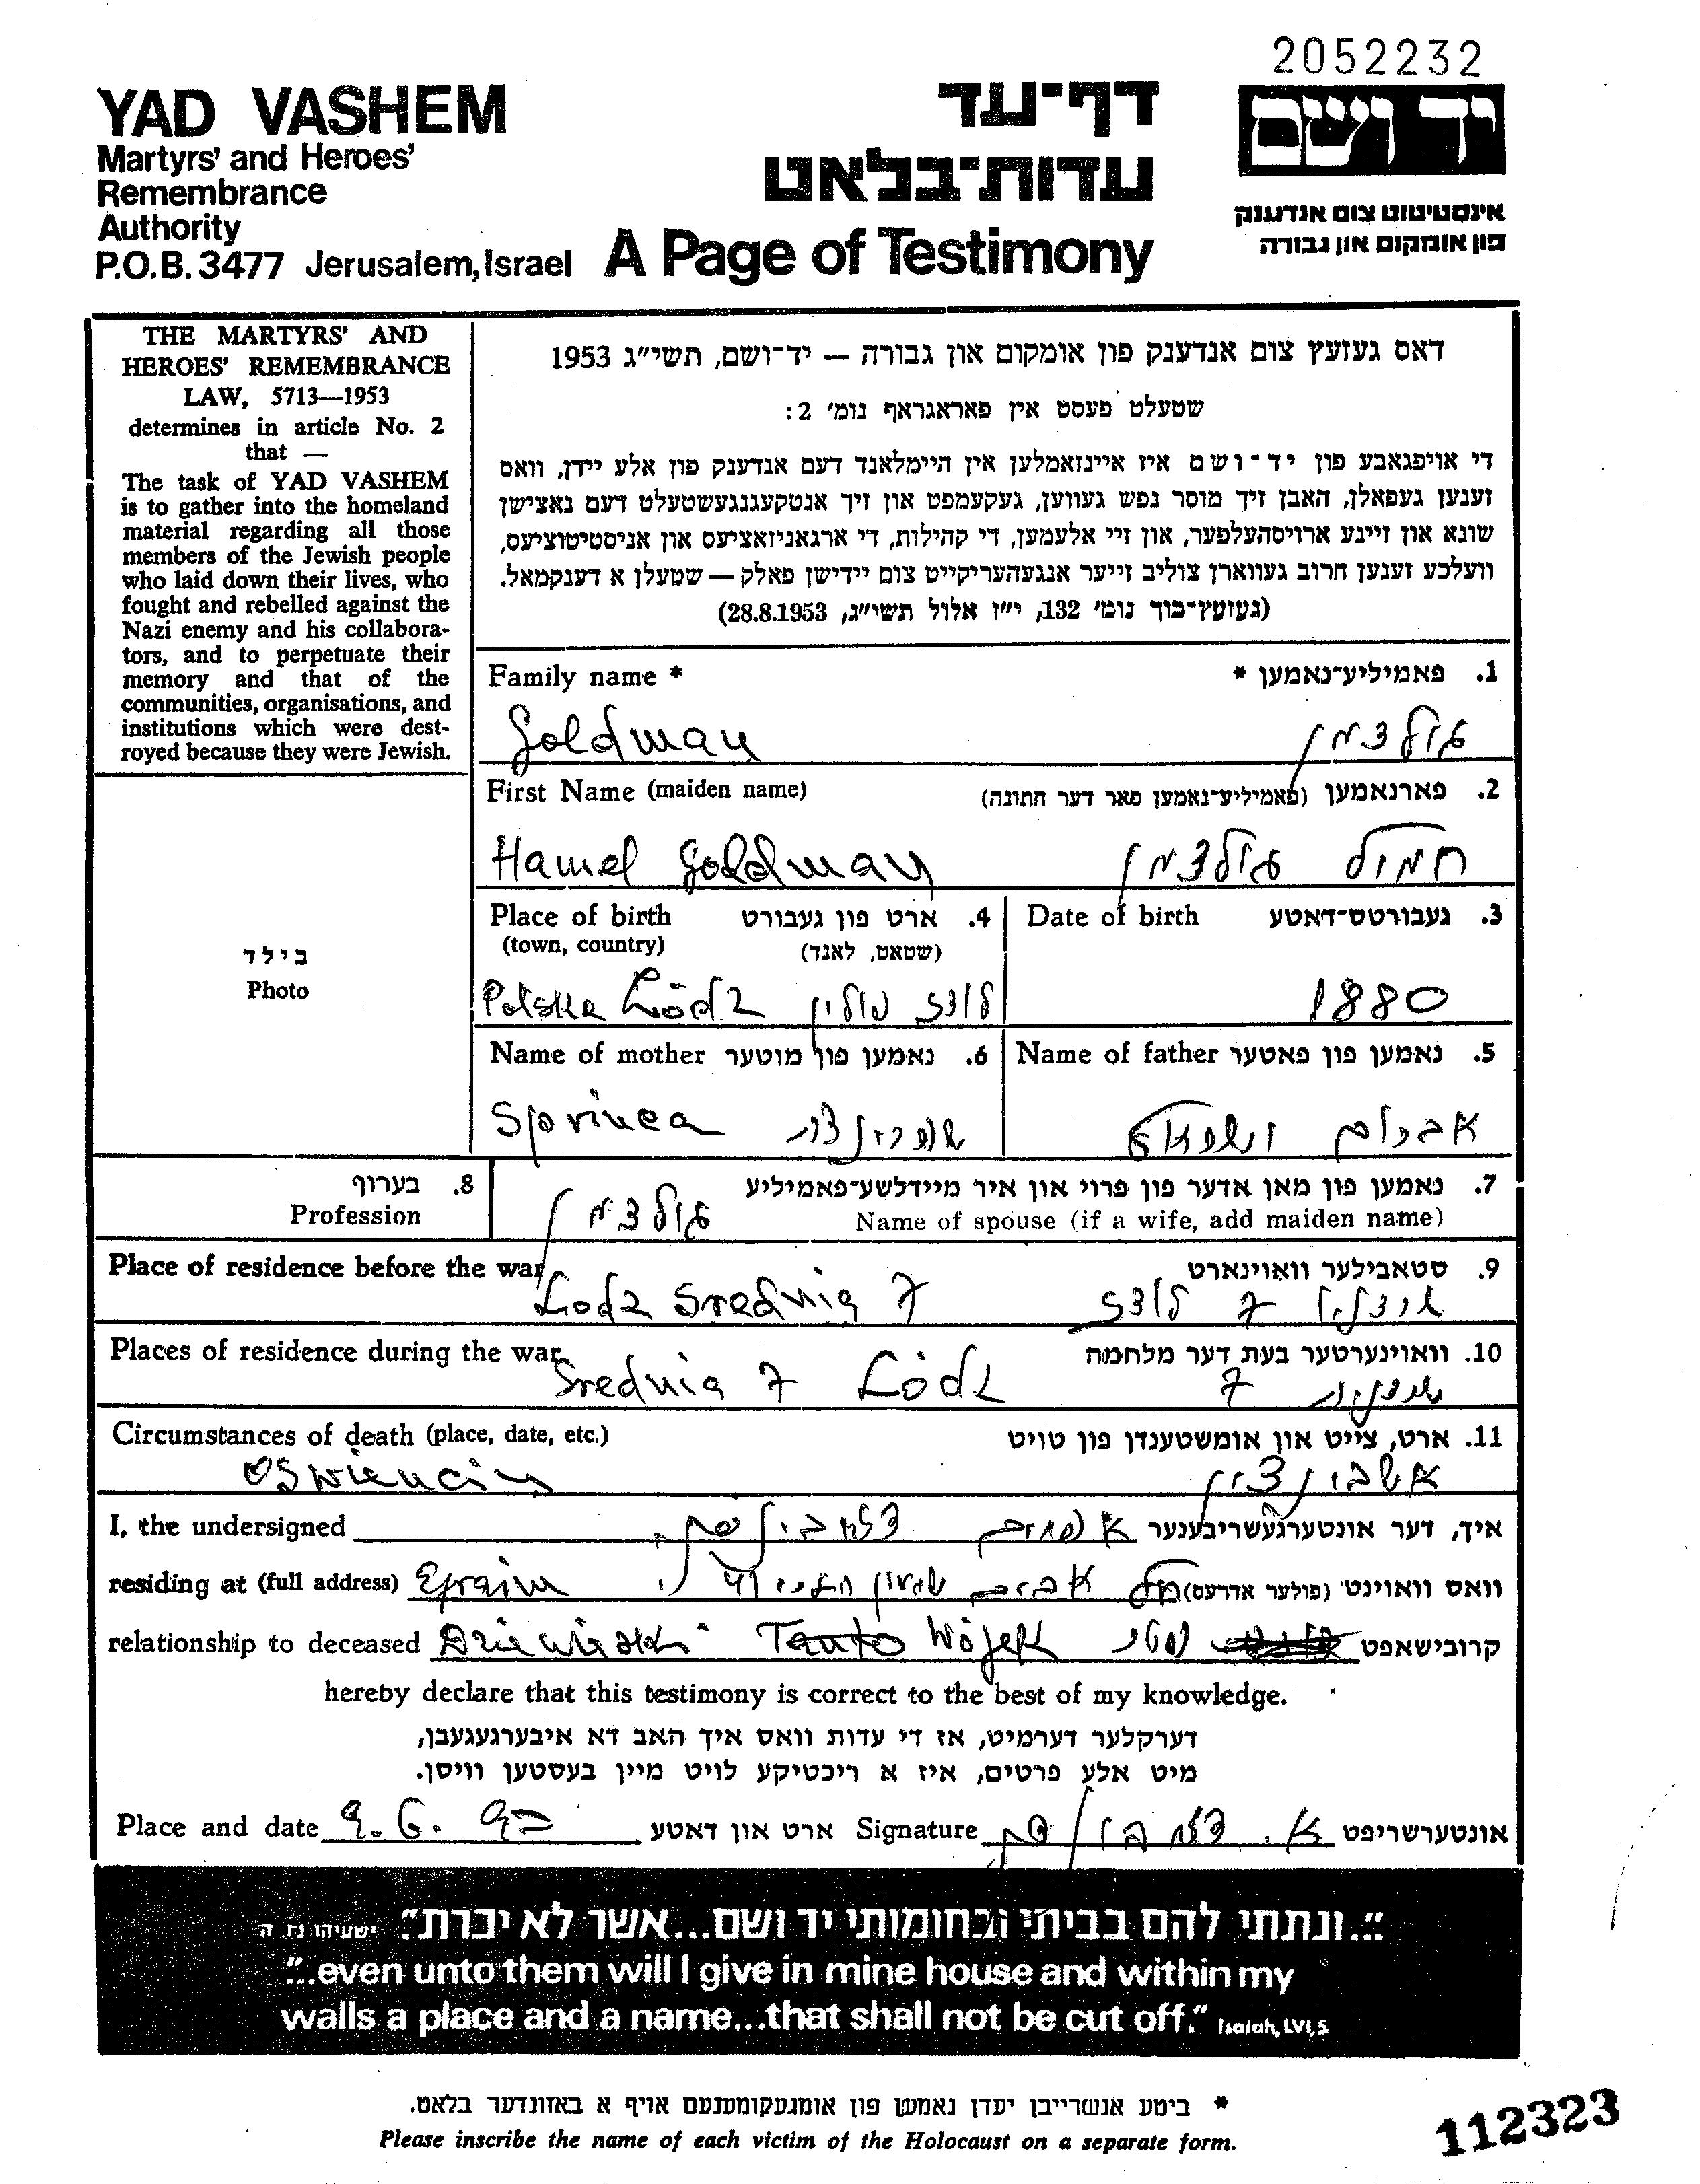 2052232
YAD VASHEM
Martyrs' and Heroes'
Remembrance
Authority
P.O.B. 3477 Jerusalem, Israel
דף־עד
עדות־בלאט
A Page of Testimony
יד ושם
אינסטיטוט צום אנדענק
פון אומקום און גבורה
THE MARTYRS' AND
HEROES' REMEMBRANCE
LAW, 5713—1953
determines in article No. 2
that —
The task of YAD VASHEM
is to gather into the homeland
material regarding all those
members of the Jewish people
who laid down their lives, who
fought and rebelled against the
Nazi enemy and his collabora-
tors, and to perpetuate their
memory and that of the
communities, organisations, and
institutions which were dest-
royed because they were Jewish.
דאס געזעץ צום אנדענק פון אומקום און גבורה — יד־ושם, תשי״ג 1953
שטעלט פעסט אין פאראגראף נומ׳ 2:
די אויפגאבע פון יד־ושם איז איינזאמלען אין היימלאנד דעם אנדענק פון אלע יידן, וואס
זענען געפאלן, האבן זיך מוסר נפש געווען, געקעמפט און זיך אנטקעגנגעשטעלט דעם נאצישן
שונא און זיינע ארויסהעלפער, און זיי אלעמען, די קהילות, די ארגאניזאציעס און אניסטיטוציעס,
וועלכע זענען חרוב געווארן צוליב זייער אנגעהעריקייט צום יידישן פאלק — שטעלן א דענקמאל.
(געזעץ־בוך נומ׳ 132, י״ז אלול תשי״ג, 28.8.1953)
Family name * 1. פאמיליע־נאמען *
Goldman גולדמן
First Name (maiden name) 2. פארנאמען (פאמיליע־נאמען פאר דער חתונה)
Hamel Goldman חמול גולדמן
בילד
Photo
Place of birth 4. ארט פון געבורט
(town, country) (שטאט, לאנד)
Polska Łódz לודז פולין
Date of birth 3. געבורטס־דאטע
1880
Name of mother 6. נאמען פון מוטער
Sprinca
Name of father 5. נאמען פון פאטער
אברהם
8. בערוף
Profession
7. נאמען פון מאן אדער פון פרוי און איר מיידלשע־פאמיליע
Name of spouse (if a wife, add maiden name)
גולדמן
Place of residence before the war 9. סטאבילער וואוינארט
Lodz Srednia 7 7 לודז
Places of residence during the war 10. וואוינערטער בעת דער מלחמה
Srednia 7 Łódz 7
Circumstances of death (place, date, etc.) 11. ארט, צייט און אומשטענדן פון טויט
Oswiencim
I, the undersigned איך, דער אונטערגעשריבענער
אפרים
residing at (full address) Efraim וואס וואוינט (פולער אדרעס)
relationship to deceased Wójek קרובישאפט
hereby declare that this testimony is correct to the best of my knowledge.
דערקלער דערמיט, אז די עדות וואס איך האב דא איבערגעגעבן,
מיט אלע פרטים, איז א ריכטיקע לויט מיין בעסטען וויסן.
Place and date 9.6. ארט און דאטע Signature אונטערשריפט
"...ונתתי להם בביתי ובחומותי יד ושם...אשר לא יכרת" ישעיהו נו ה
"...even unto them will I give in mine house and within my
walls a place and a name...that shall not be cut off." Isaiah, LVI, 5
* ביטע אנשרייבן יעדן נאמען פון אומגעקומענעם אויף א באזונדער בלאט.
Please inscribe the name of each victim of the Holocaust on a separate form.
112323